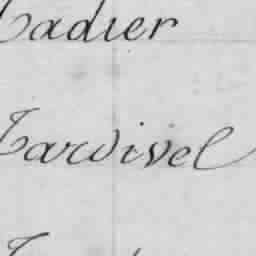 Tadier
Tardivel